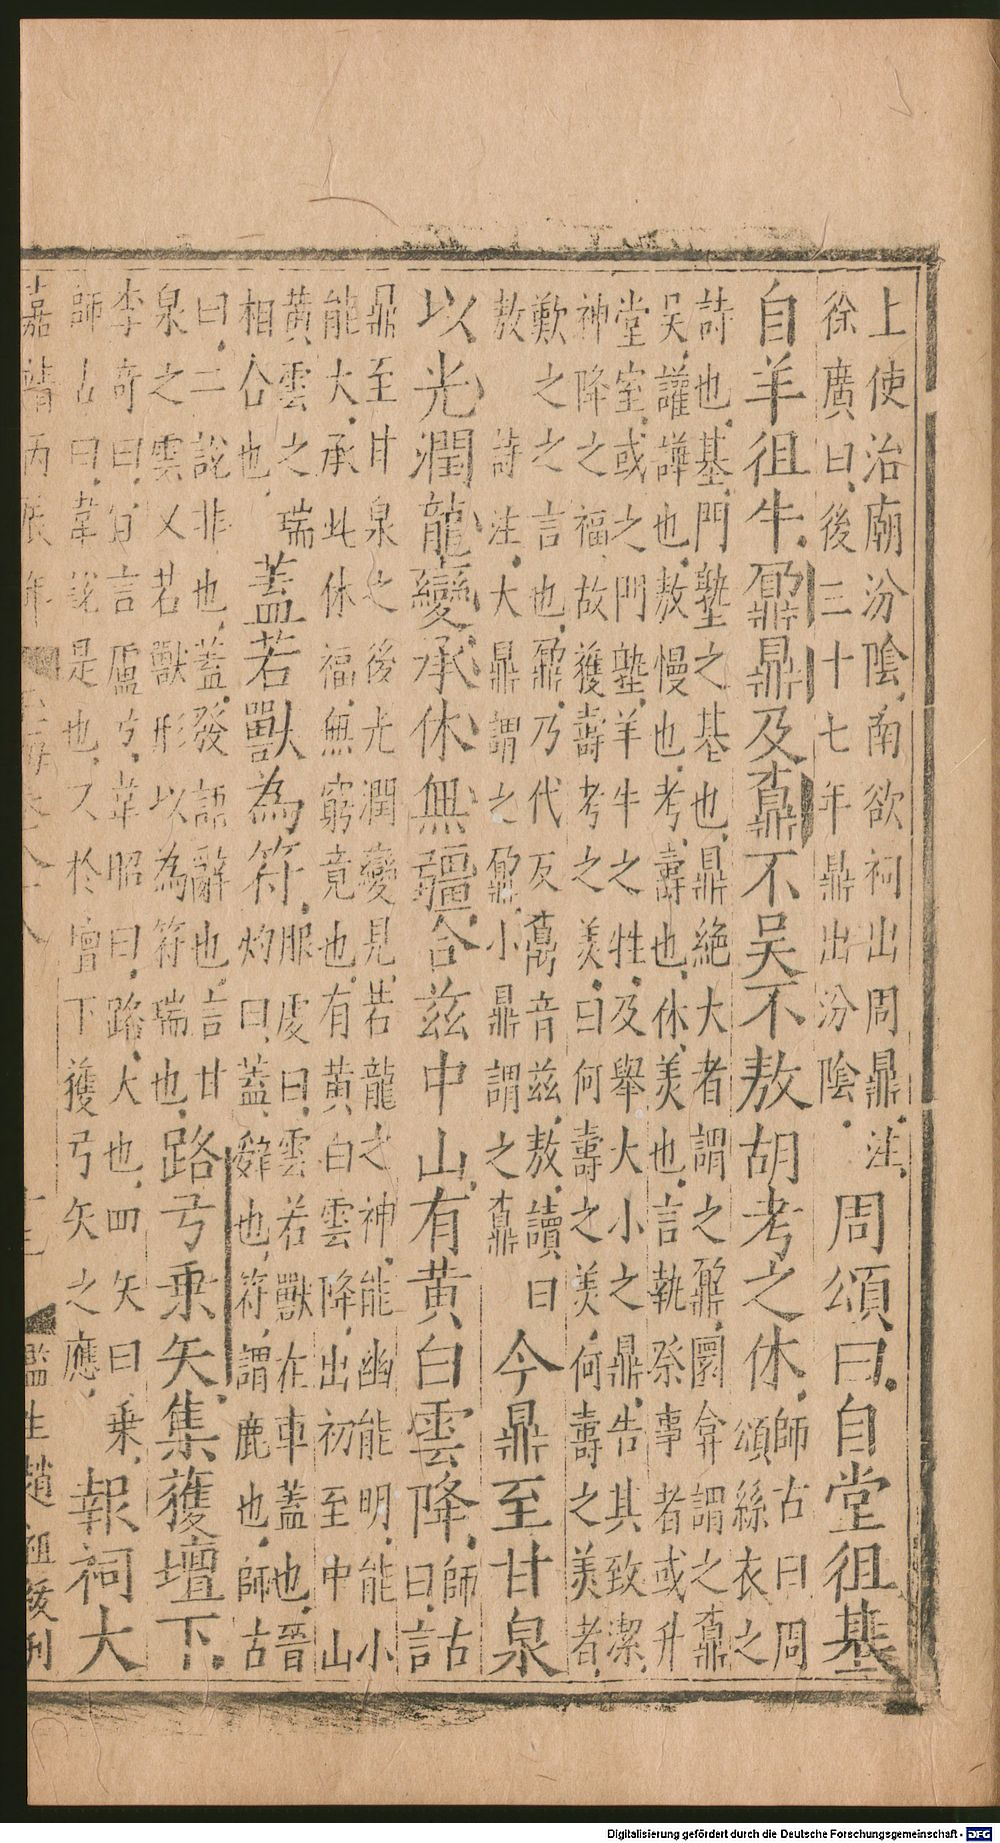 上使治廟汾隂南欲祠出周鼎注
徐廣曰後三十七年鼎出汾隂
周頌曰自堂徂基
自羊徂牛鼐鼎及鼒不吴不敖胡考之休
師古曰周
頌絲衣之
詩也基門塾之基也鼎絶大者謂之鼐圜弇謂之鼒
吴讙譁也敖慢也考壽也休美也言執祭事者或升
堂室或之門塾羊牛之牲及舉大小之鼎告其致潔
神降之福故獲壽考之美曰何壽之美何壽之美者
歎之之言也鼐乃代反鼒音兹敖讀曰
敖詩注大鼎謂之鼐小鼎謂之鼒
今鼎至甘泉
以光潤龍變承休無疆合兹中山有黄白雲降
師古
曰詁
鼎至甘泉之後光潤變見若龍之神能幽能明能小
能大承此休福無窮竟也有黄白雲降出初至中山
黄雲之瑞
相合也
蓋若獸為符
服虔曰雲若獸在車蓋也晉
灼曰蓋辭也符謂鹿也師古
曰二說非也蓋發語辭也言甘
泉之雲又若獸形以為符瑞也
路弓乗矢集獲壇下
李奇曰宜言盧弓韋昭曰路大也四矢曰乗
師古曰韋說是也又於壇下獲弓矢之應
報祠大
嘉靖丙辰年
監生趙祖綬刊
Digitalisierung gefördert durch die Deutsche Forschungsgemeinschaft - DFG